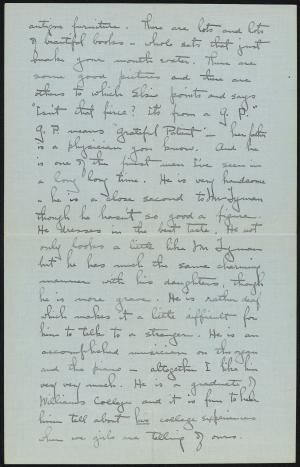 antique furniture. There are lots and lots
of beautiful books - whole sets that just
make your mouth water. There are
some good pictures and there are
others to which Elsie points and says
"Isn't that fierce? It's from a G. P."
G. P. means "Grateful Patient" - her father
is a physician you know. And he
is one of the finest men I've seen in
a long long time. He is very handsome
- he is a close second to Mr Lyman
though he hasn't so good a figure.
He dresses in the best taste. He not
only looks a little like Mr Lyman
but he has much the same charming
manner with his daughters, though
he is more grave. He is rather deaf
which makes it a little difficult for
him to talk to a stranger. He is an
accomplished musician on the organ
and the piano - altogether I like him
very very much. He is a graduate of
Williams College and it is fun to hear
him tell about his college experiences
when we girls are telling of ours.